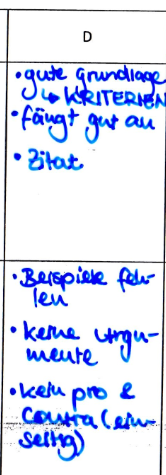 D
• gute Grundlage
↳ KRITERIEN
• fängt gut an
• Zitat
• Beispiele feh-
len
• keine Argu-
mente
• kein pro &
contra (ein-
seitig)